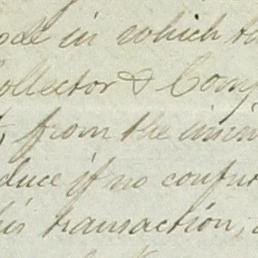 in which th
ollector & Comp
from the
duce if no confu
his transaction,